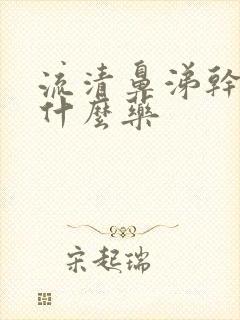 流清鼻涕幹
什麼藥
宋起瑞